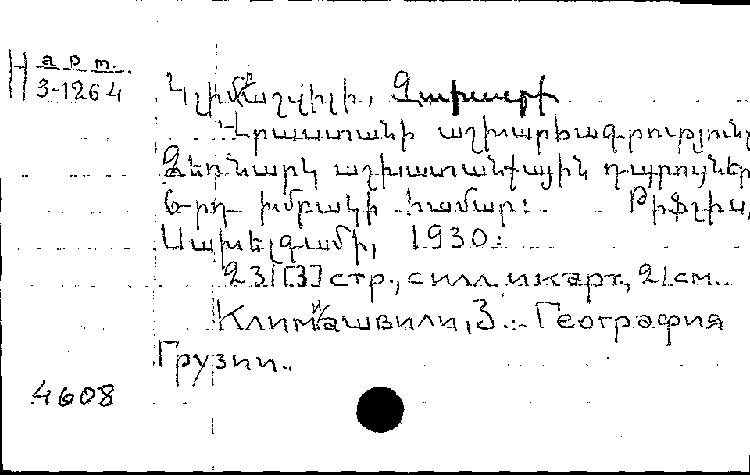 H арт.
3-1264
Կլիմիաշվիլի, Զաքարի
Վրաստանի աշխարհագրություն
Ձեռնարկ աշխատանքային դպրոցներ
6-րդ խմբակի համար: Թիֆլիս,
Սախելգամի, 1930:
231[3] стр., с илл. и карт., 21 см.
Климиашвили, З. - География
Грузии.
4608